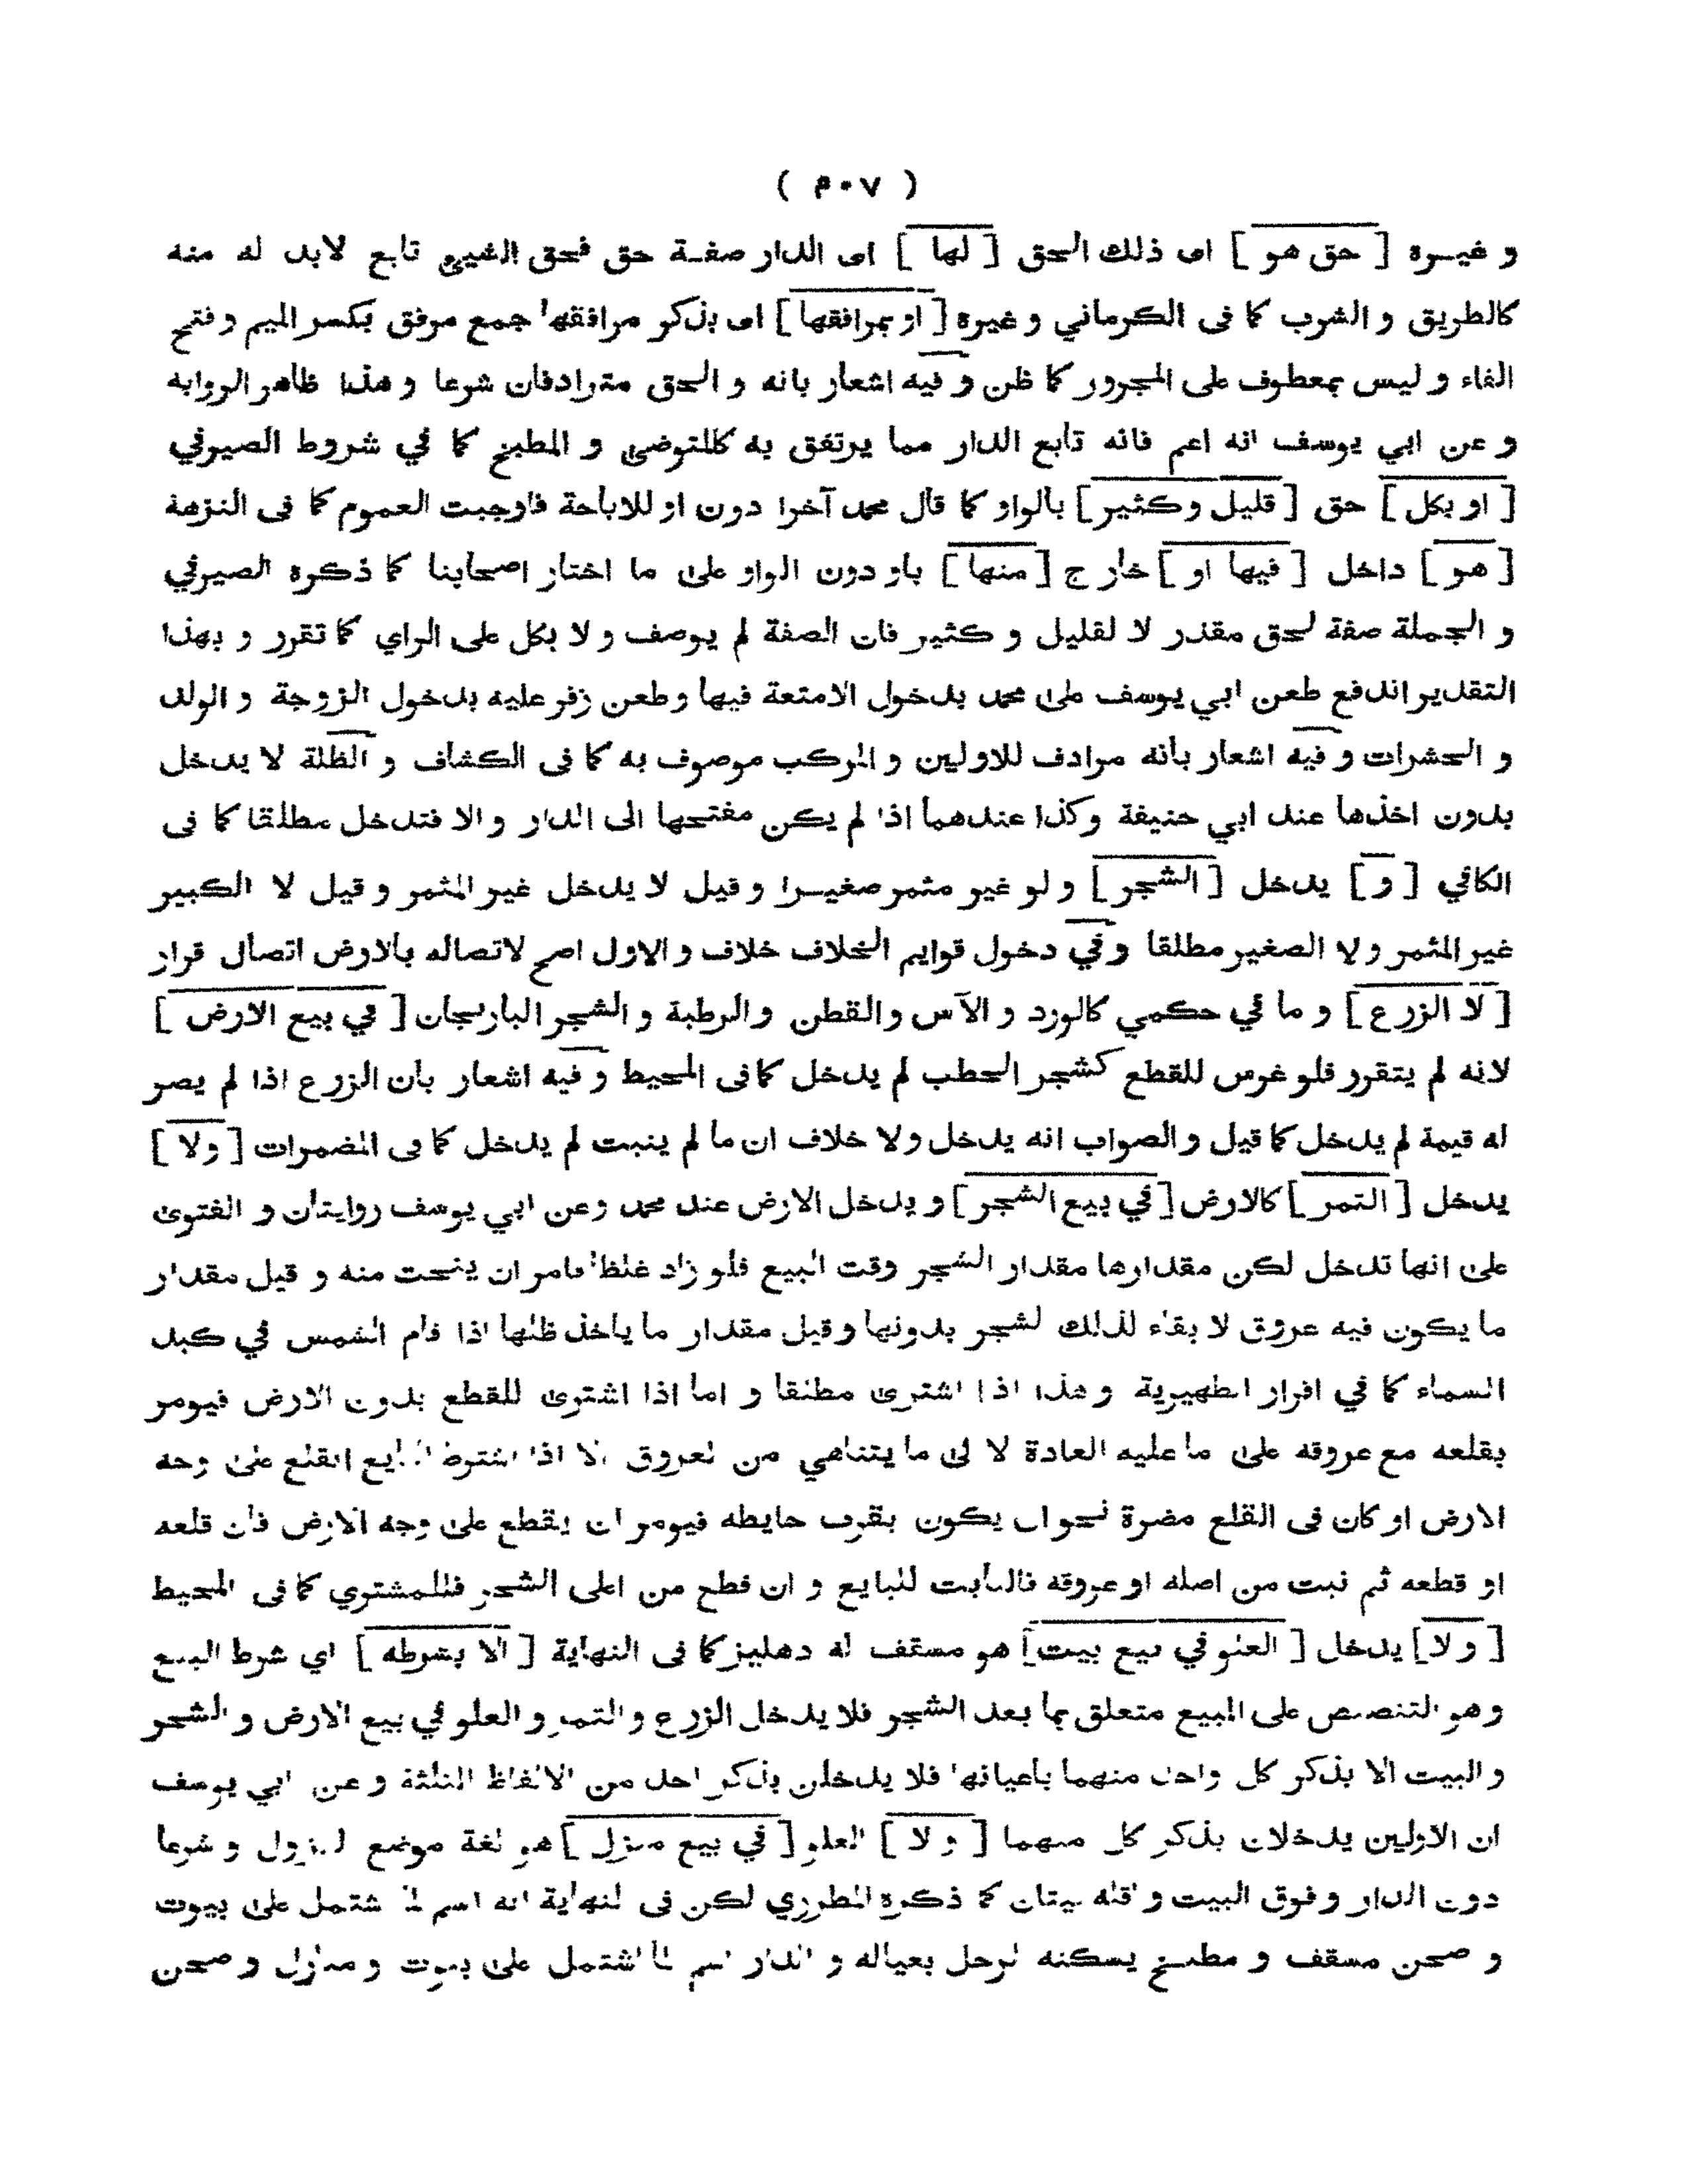 ( ٥٠٧ )
و غيره [ حق هو ] اى ذلك الحق [ لها ] اى الدار صفة حق فحق الشيئ تابع لابد له منه
كالطريق و الشرب كما فى الكرماني و غيره [ او بمرافقها ] اى بذكر مرافقها جمع مرفق بكسر الميم و فتح
الفاء و ليس بمعطوف على المجرور كما ظن و فيه اشعار بانه و الحق مترادفان شرعا و هذا ظاهر الرواية
و عن ابي يوسف انه اعم فانه تابع الدار مما يرتفق به كالمتوضئ و المطبخ كما في شروط الصيرفي
[ او بكل ] حق [ قليل و كثير ] بالواو كما قال محمد آخرا دون او للاباحة فاوجبت العموم كما فى النزهة
[ هو ] داخل [ فيها او ] خارج [ منها ] باو دون الواو على ما اختار اصحابنا كما ذكره الصيرفي
و الجملة صفة لحق مقدر لا لقليل و كثير فان الصفة لم يوصف و لا بكل على الراي كما تقرر و بهذا
التقدير اندفع طعن ابي يوسف على محمد بدخول الامتعة فيها و طعن زفر عليه بدخول الزوجة و الولد
و الحشرات و فيه اشعار بأنه مرادف للاولين و المركب موصوف به كما فى الكشاف و الظلة لا يدخل
بدون اخذها عند ابي حنيفة و كذا عندهما اذا لم يكن مفتحها الى الدار و الا فتدخل مطلقا كما فى
الكافي [ و ] يدخل [ الشجر ] و لو غير مثمر صغيرا و قيل لا يدخل غير المثمر و قيل لا الكبير
غير المثمر و لا الصغير مطلقا و في دخول قوايم الخلاف خلاف و الاول اصح لاتصاله بالارض اتصال قرار
[ لا الزرع ] و ما في حكمي كالورد و الآس و القطن و الرطبة و الشجر الباذنجان [ في بيع الارض ]
لانه لم يتقرر فلو غرس للقطع كشجر الحطب لم يدخل كما فى المحيط و فيه اشعار بأن الزرع اذا لم يصر
له قيمة لم يدخل كما قيل و الصواب انه يدخل و لا خلاف ان ما لم ينبت لم يدخل كما فى المضمرات [ و لا ]
يدخل [ الثمر ] كالارض [ في بيع الشجر ] و يدخل الارض عند محمد و عن ابي يوسف روايتان و الفتوى
على انها تدخل لكن مقدارها مقدار الشجر وقت البيع فلو زاد غلظا فامر ان ينحت منه و قيل مقدار
ما يكون فيه عروق لا بقاء لذلك الشجر بدونها و قيل مقدار ما ياخذ ظلها اذا قام الشمس في كبد
السماء كما في اقرار الظهيرية و هذا اذا اشترى مطلقا و اما اذا اشترى للقطع بدون الارض فيومر
بقلعه مع عروقه على ما عليه العادة لا الى ما يتناهي من العروق الا اذا اشترط البايع القلع على وجه
الارض او كان فى القلع مضرة نحو ان يكون بقرب حايطه فيومر ان يقطع على وجه الارض فان قلعه
او قطعه ثم نبت من اصله او عروقه فالنابت للبايع و ان قطع من اعلى الشجر فللمشتري كما فى المحيط
[ و لا ] يدخل [ العلو في بيع بيت ] هو مسقف له دهليز كما فى النهاية [ الا بشرطه ] اي شرط البيع
و هو التنصيص على المبيع متعلق بما بعد الشجر فلا يدخل الزرع و الثمر و العلو في بيع الارض و الشجر
و البيت الا بذكر كل واحد منهما بأعيانها فلا يدخلن بذكر احد من الالفاظ الثلثة و عن ابي يوسف
ان الاولين يدخلان بذكر كل منهما [ و لا ] العلو [ في بيع منزل ] هو لغة موضع النزول و شرعا
دون الدار و فوق البيت و اقله بيتان كما ذكره المطرزي لكن فى النهاية انه اسم لما اشتمل على بيوت
و صحن مسقف و مطبخ يسكنه الرجل بعياله و الدار اسم لما اشتمل على بيوت و منازل و صحن